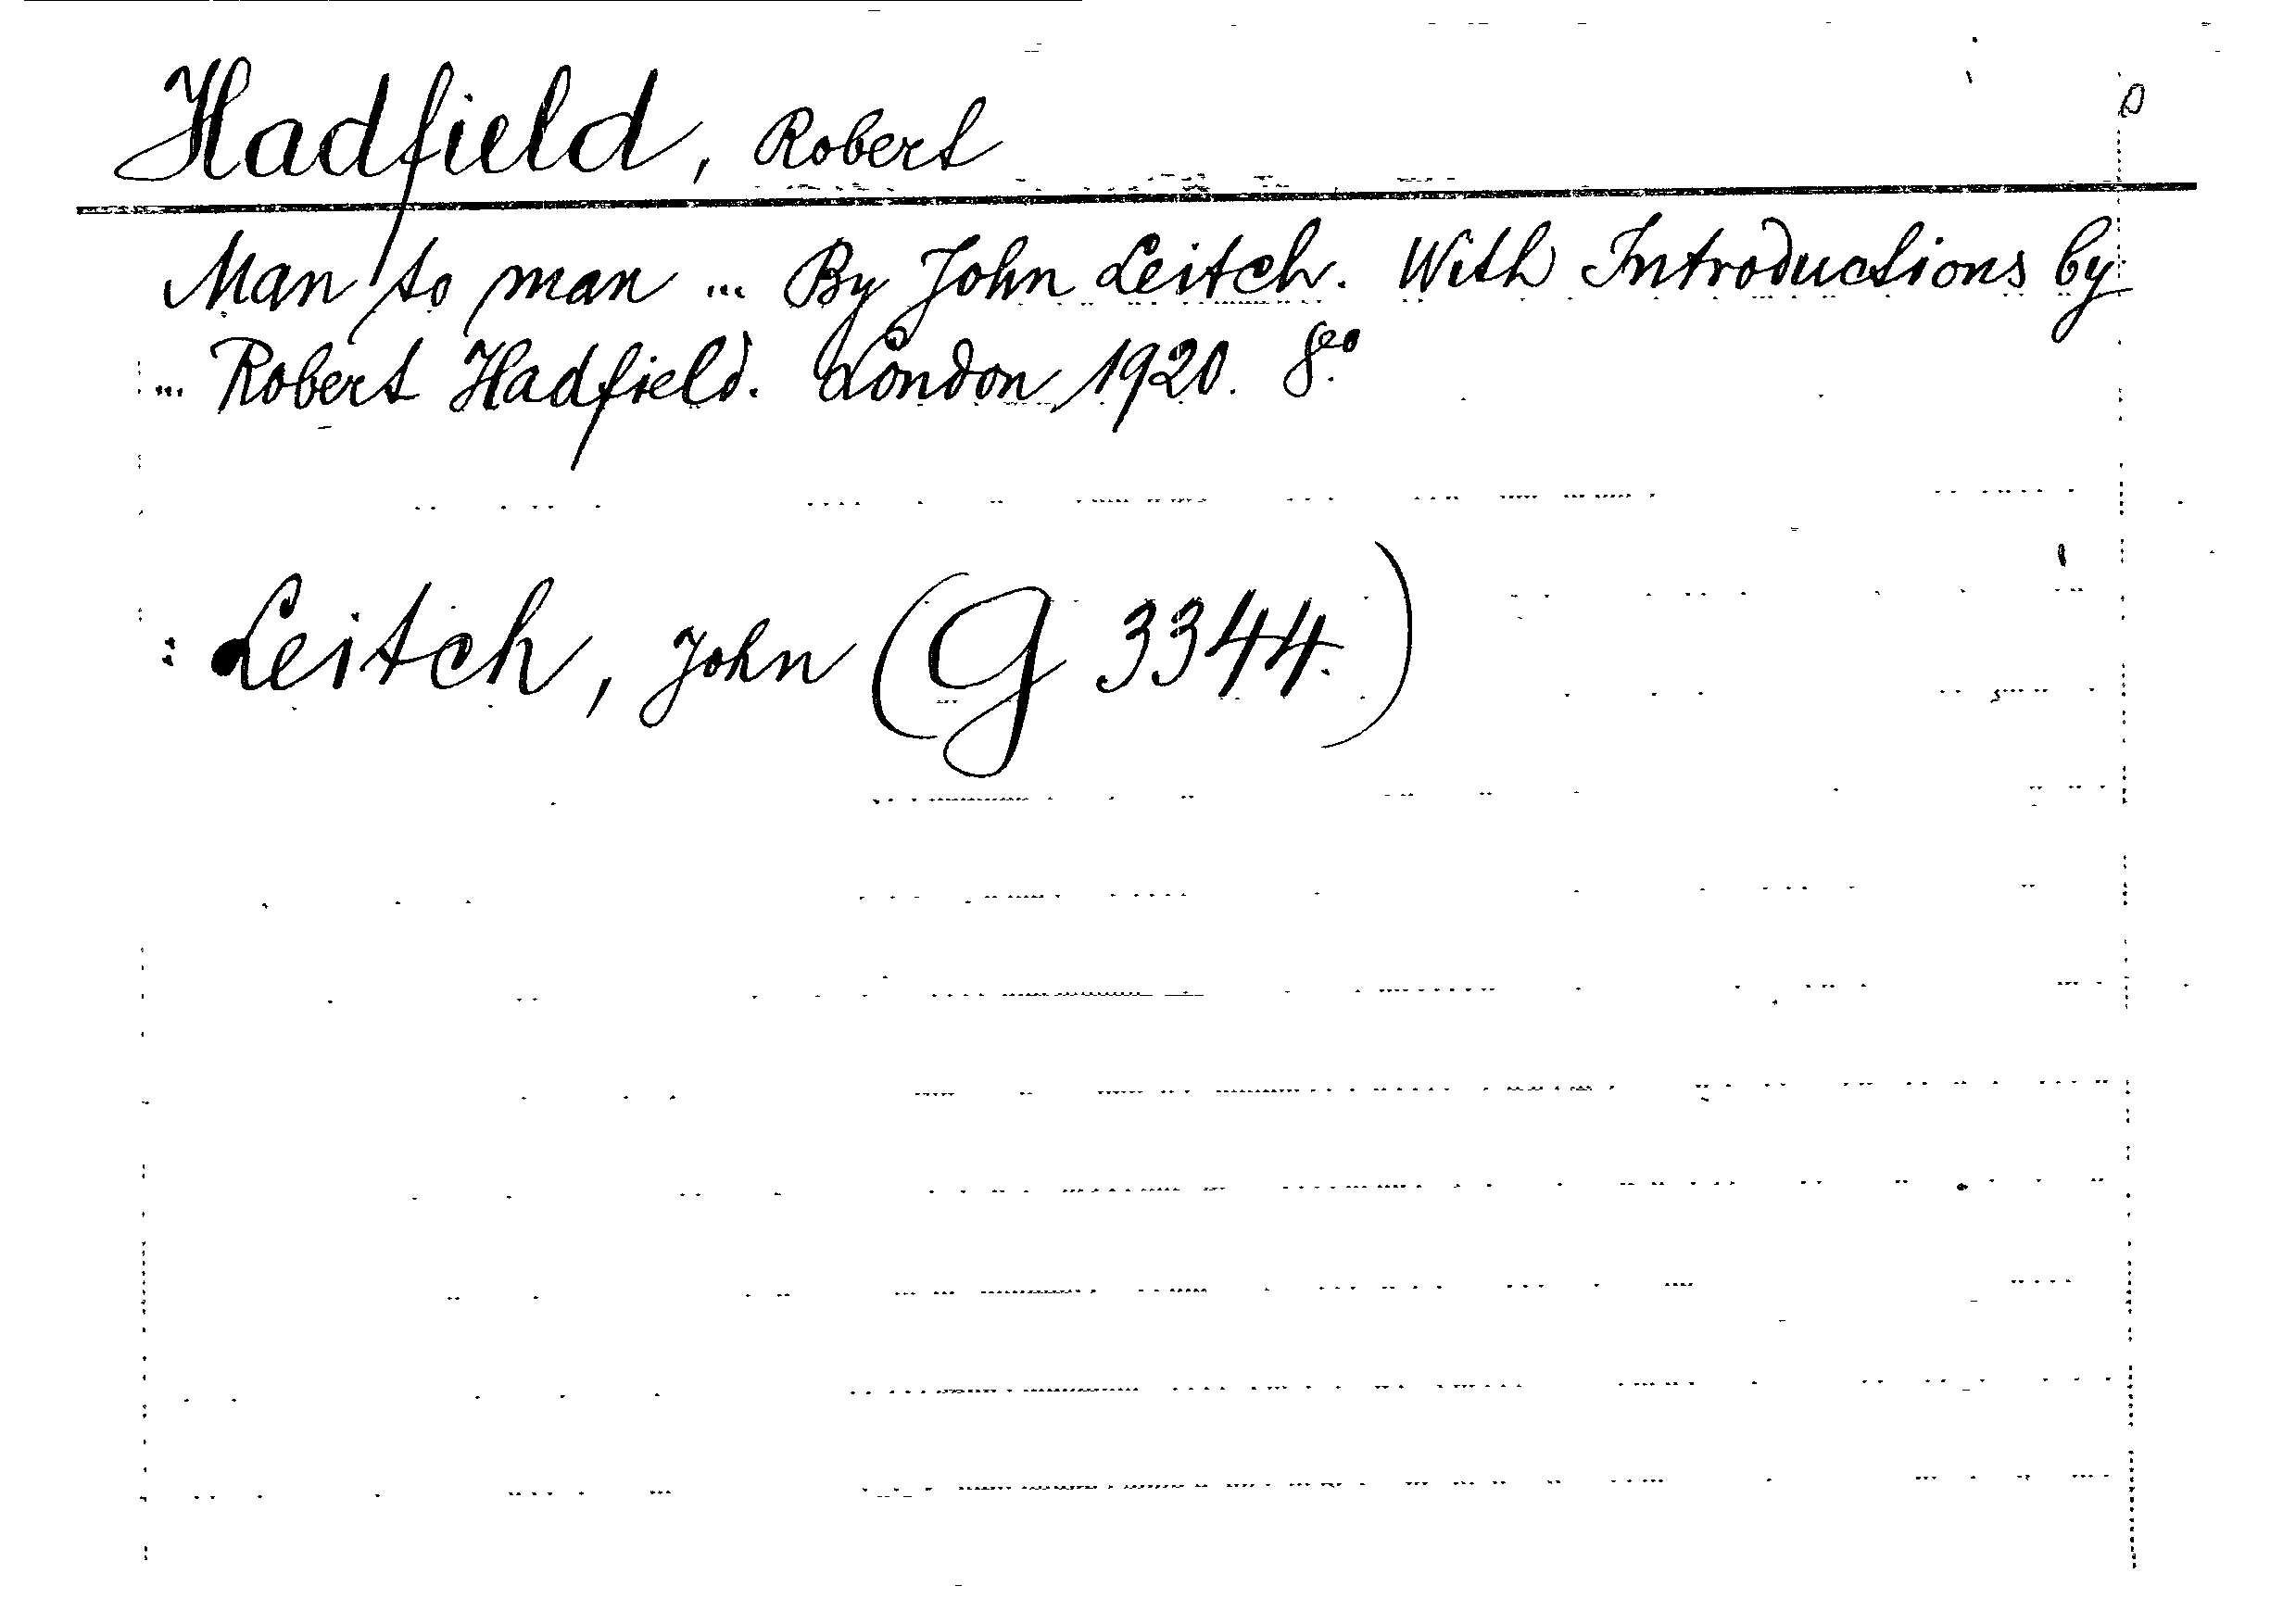 Hadfield, Robert
Man to man ... By John Leitch. With Introductions by
... Robert Hadfield. London 1920. 8:o
: Leitch, John (G 3344.)